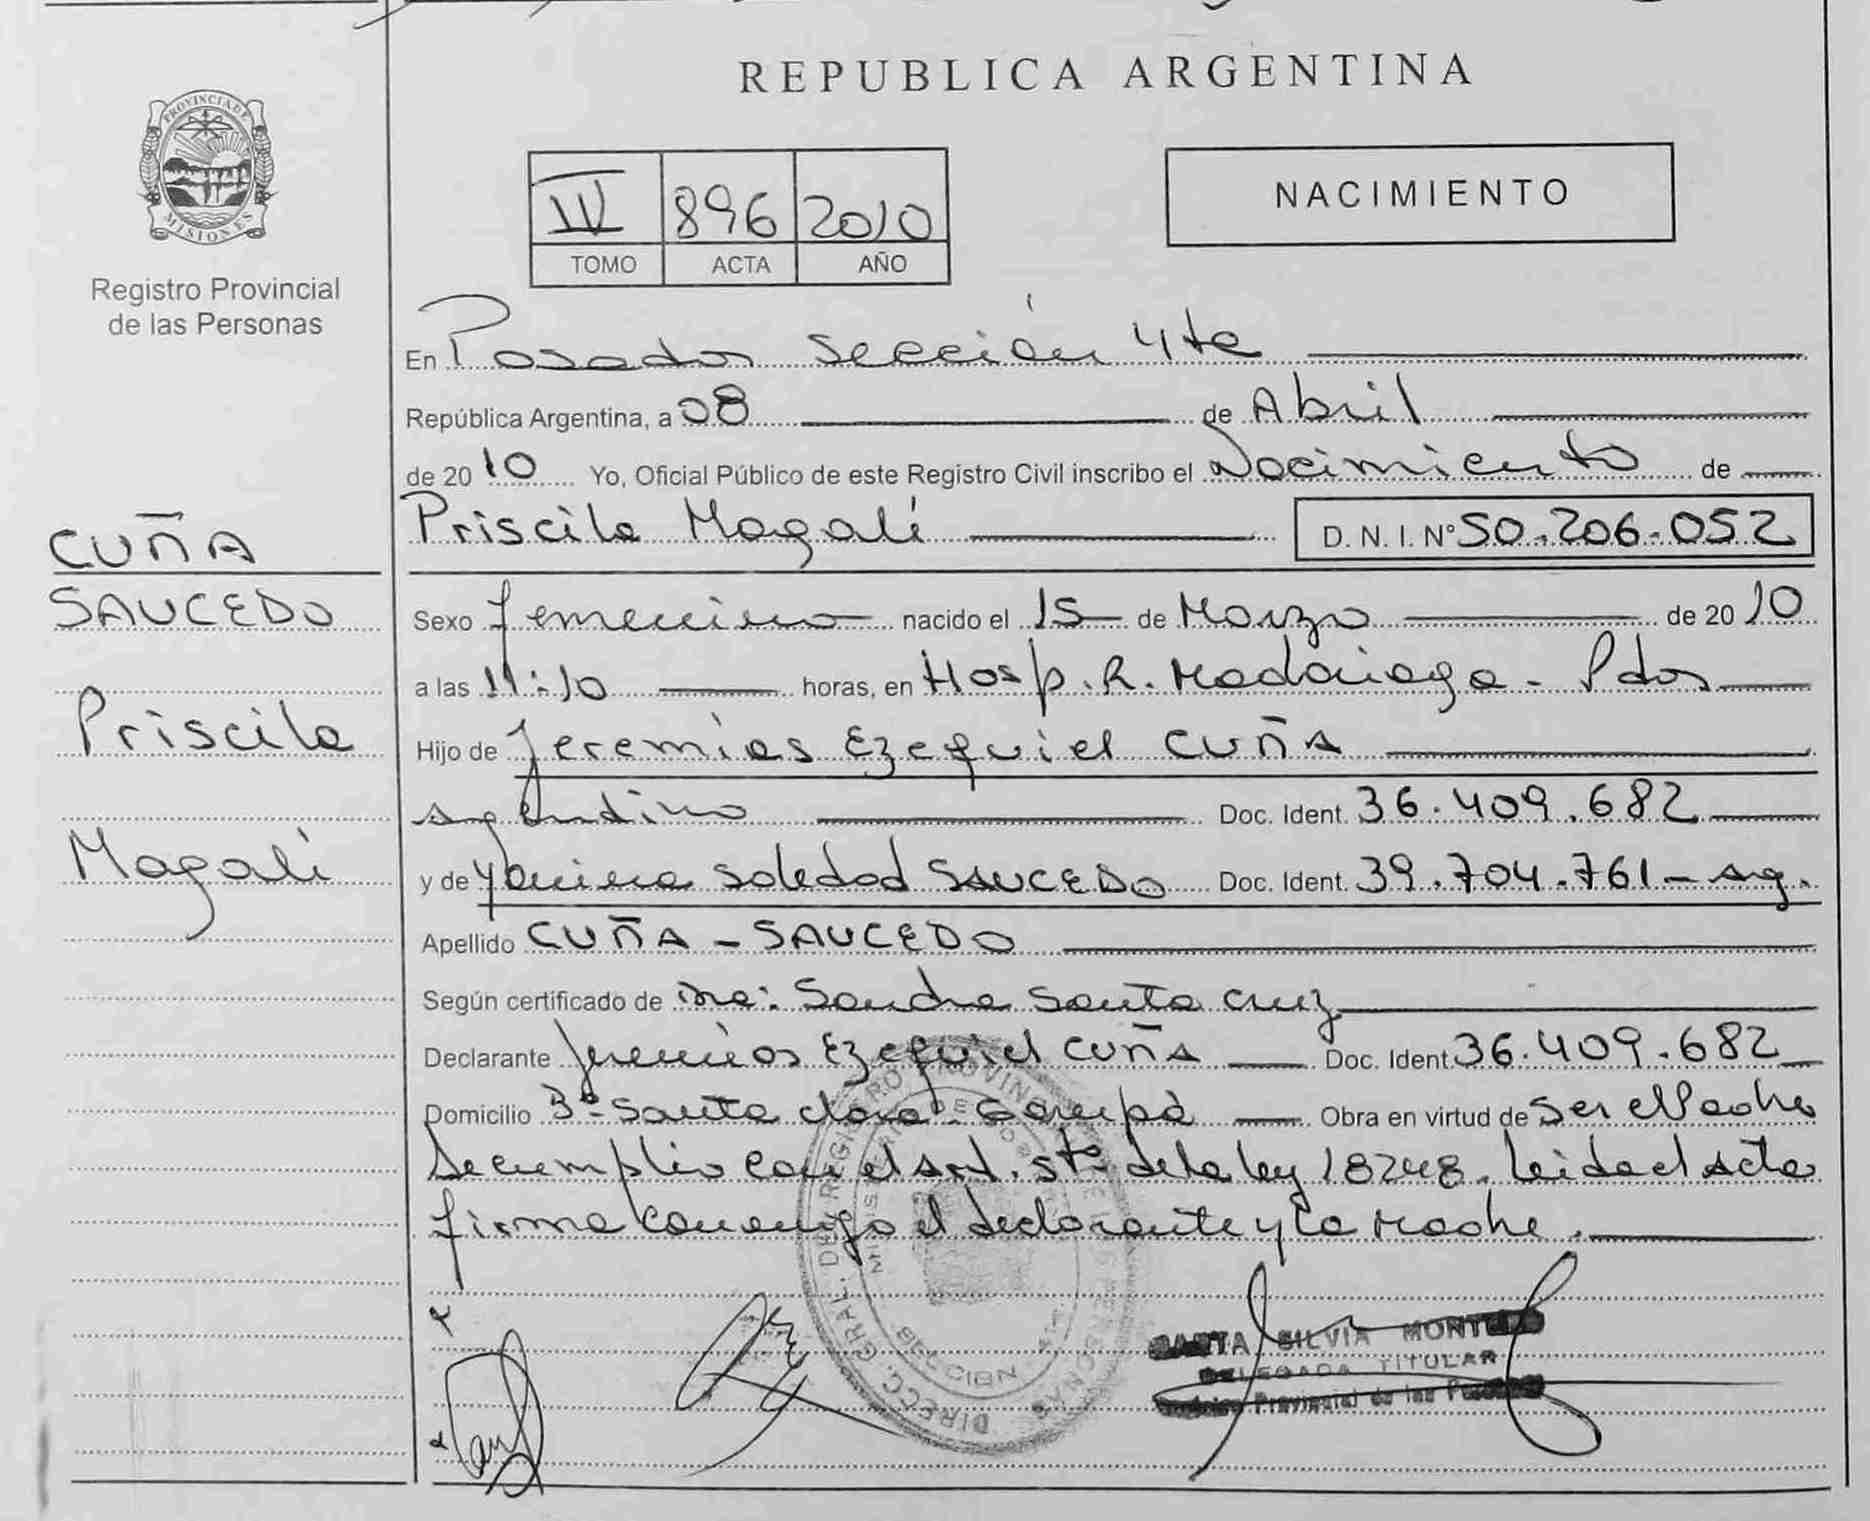 REPUBLICA ARGENTINA
PROVINCIA DE MISIONES
Registro Provincial
de las Personas
IV 896 2010
TOMO ACTA AÑO
NACIMIENTO
En Posadas Sección 4ta
República Argentina, a 08 de Abril
de 2010 Yo, Oficial Público de este Registro Civil inscribo el Nacimiento de
Priscila Magalí D.N.I. Nº 50.206.052
CUÑA
SAUCEDO
Priscila
Magalí
Sexo femenino nacido el 15 de Marzo de 2010
a las 11:10 horas, en Hosp. R. Madariaga - Pdas
Hijo de Jeremías Ezequiel CUÑA
argentino Doc. Ident. 36.409.682
y de Yanina Soledad SAUCEDO Doc. Ident. 39.704.761 - arg.
Apellido CUÑA - SAUCEDO
Según certificado de Sandra Santa Cruz
Declarante Jeremías Ezequiel CUÑA Doc. Ident. 36.409.682
Domicilio Bº Santa Clara - Garupá Obra en virtud de Ser el Padre
Se cumplió con el Art. 5to de la ley 18248. Leida el Acta
firma conmigo el declarante y la Madre.
DIRECC. GRAL. DEL REGISTRO PROVINCIAL DE LAS PERSONAS
SECCION 4ta
SILVIA
DELEGADA TITULAR
Provincial de las